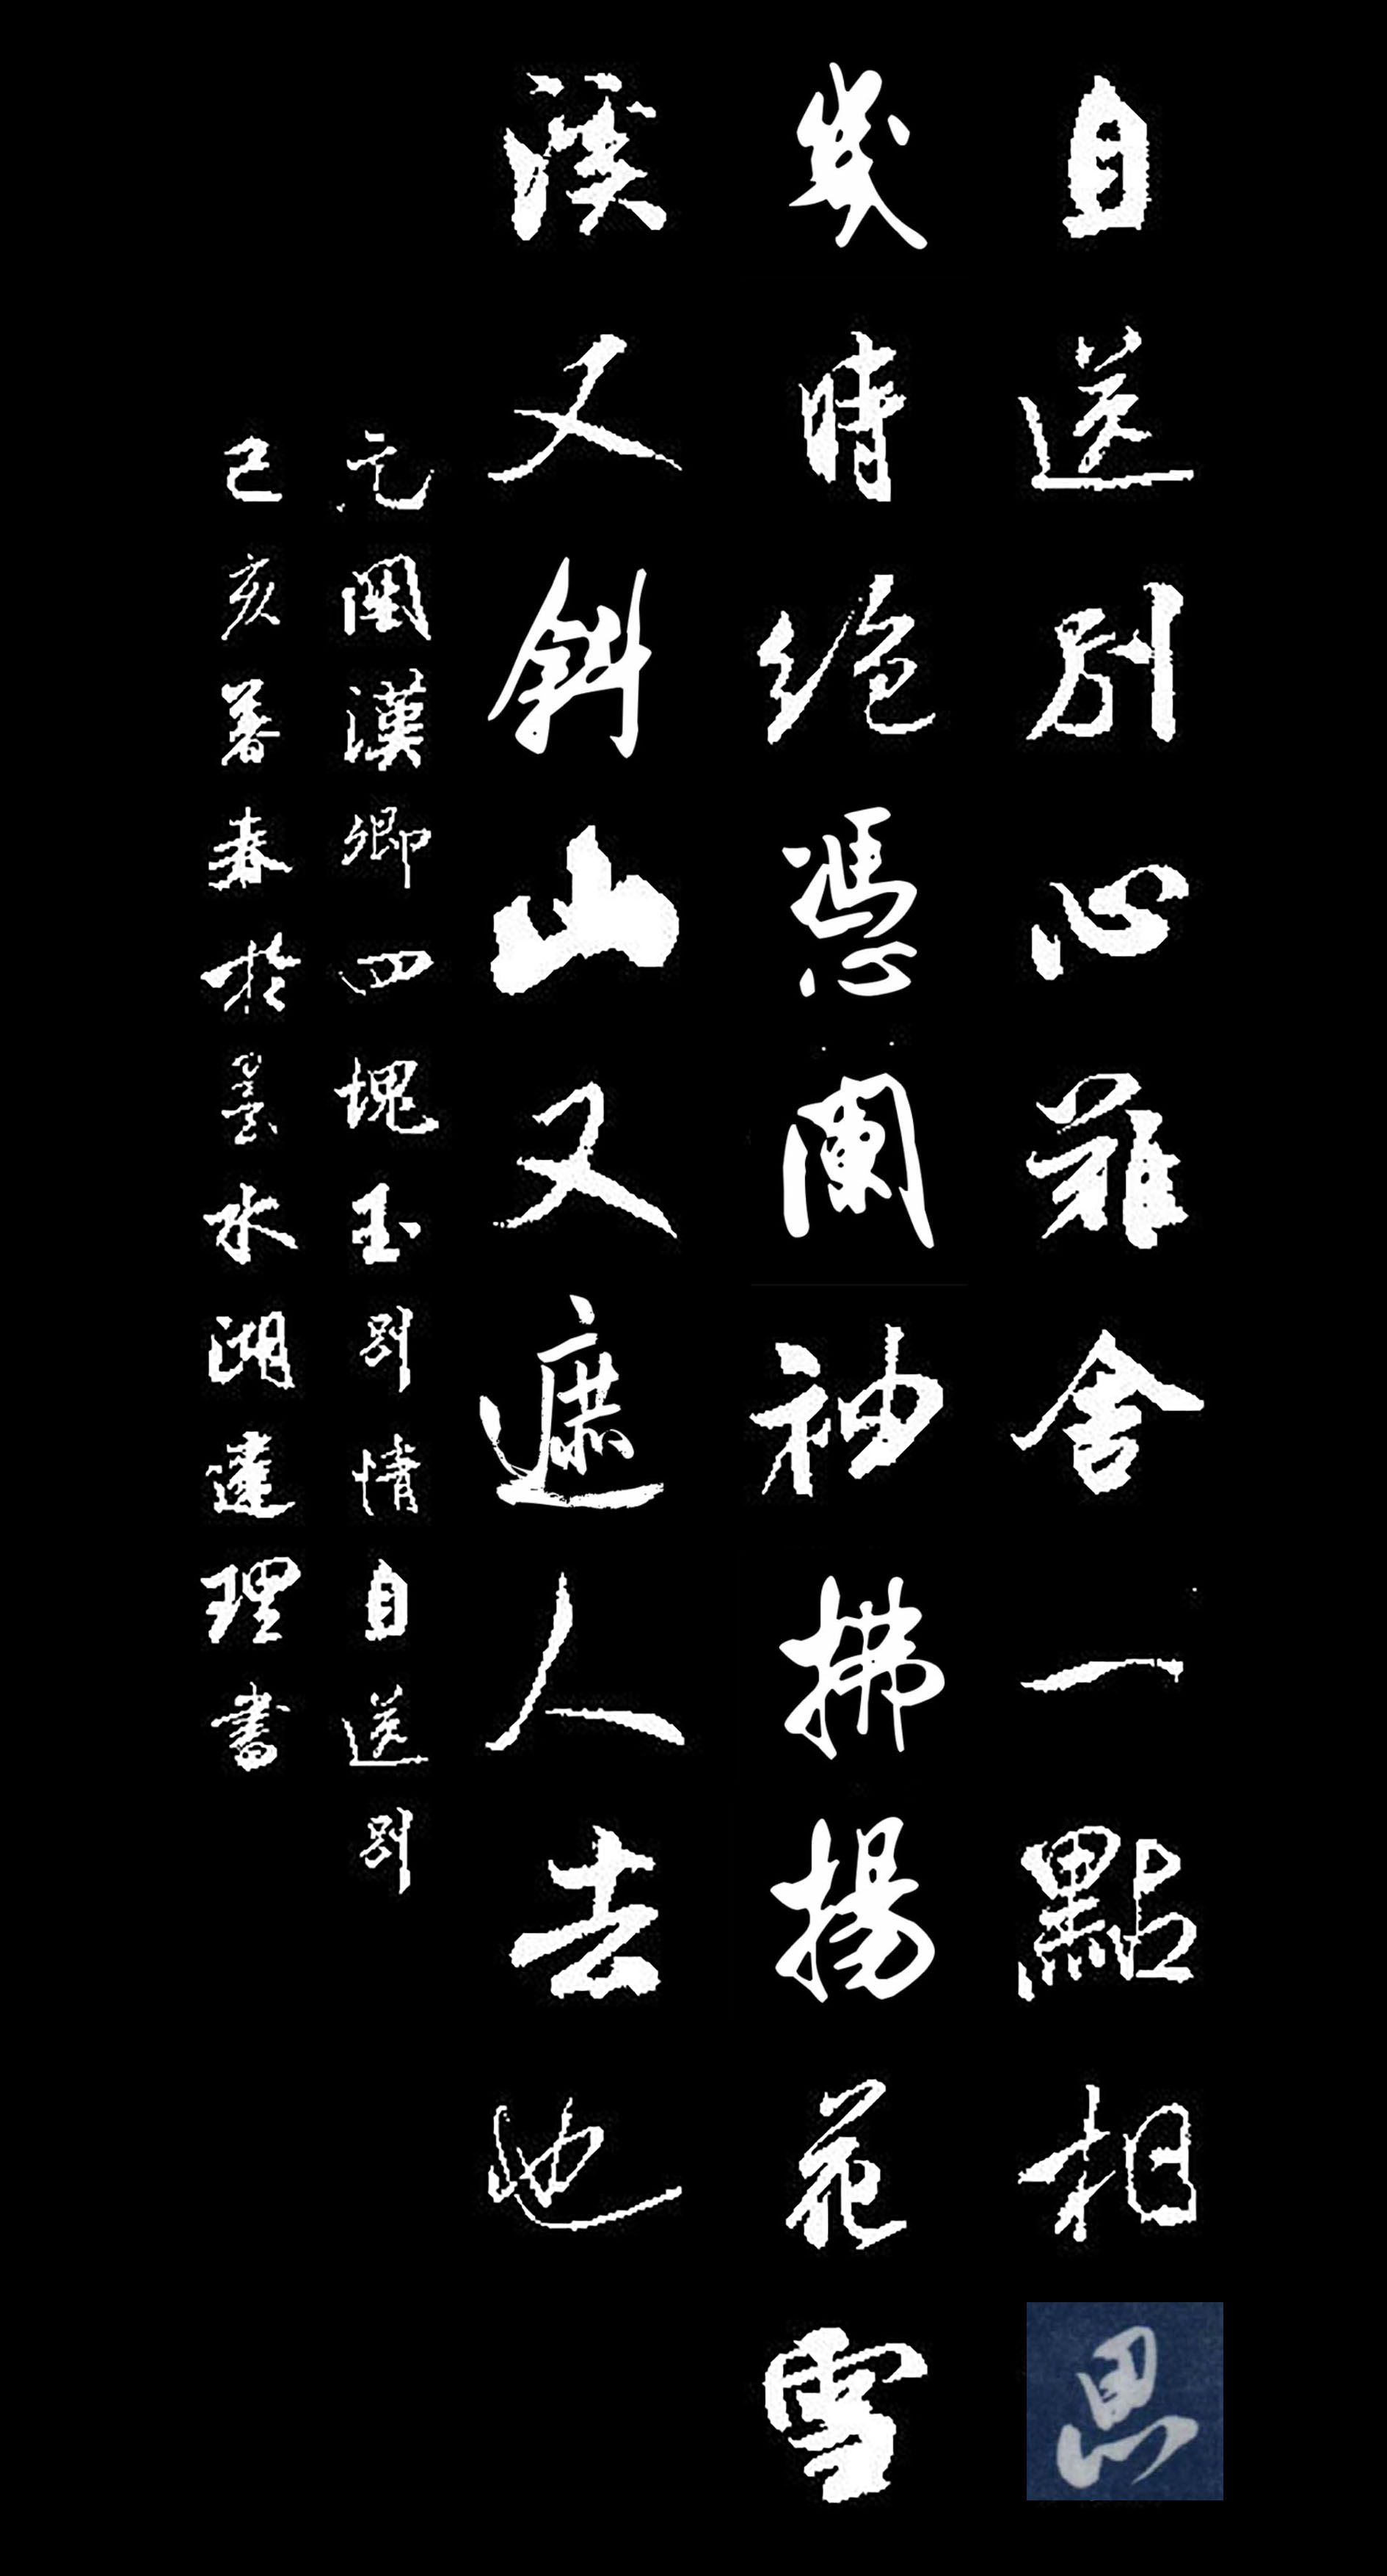 自送別心難舍一點相思
幾時絕憑闌袖拂揚花雪
溪又斜山又遮人去也
元關漢卿四塊玉別情自送別
己亥暮春於墨水湖達理書